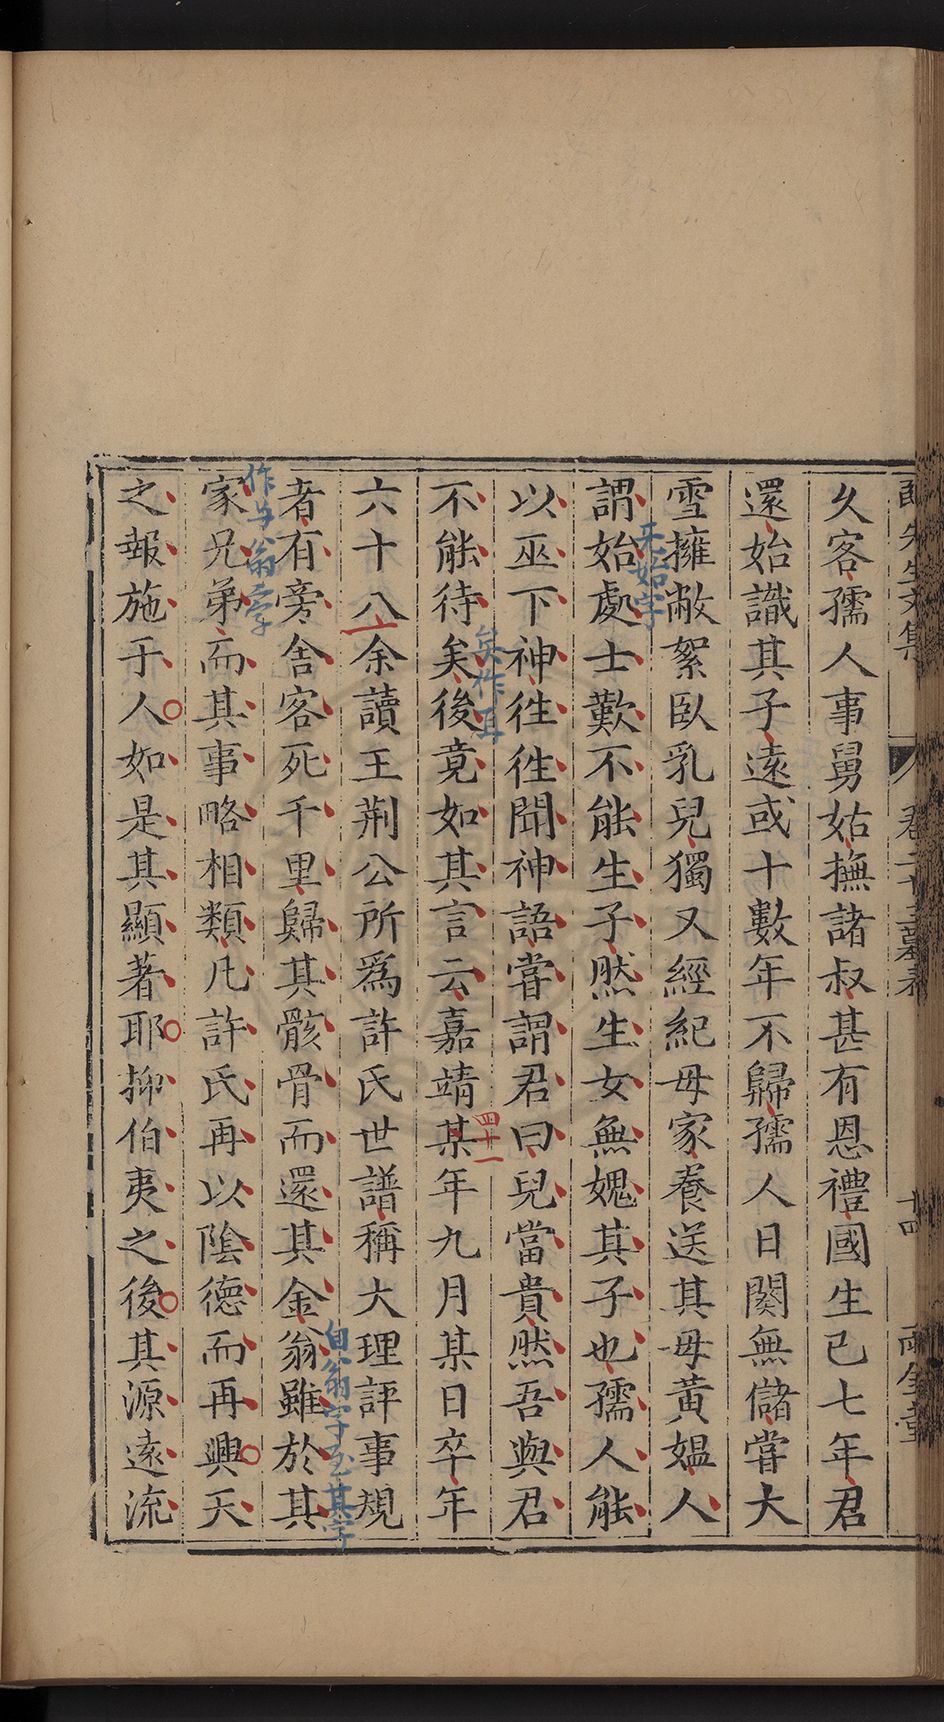 久客孺人事舅姑撫諸叔甚有恩禮國生已七年君
還始識其子遠或十數年不歸孺人日闋無儲嘗大
雪擁敝絮臥乳兒獨又經紀母家養送其母黃媼人
謂始處士歎不能生子然生女無媿其子也孺人能
无始字
以巫下神徃徃聞神語嘗謂君曰兒當貴然吾與君
不能待矣後竟如其言云嘉靖某年九月某日卒年
矣作耳
四十一
六十八余讀王荆公所爲許氏世譜稱大理評事規
者有旁舍客死千里歸其骸骨而還其金翁雖於其
自翁字至其字
作與翁處字
家兄弟而其事略相類凡許氏再以陰德而再興天
之報施于人如是其顯著耶抑伯夷之後其源遠流